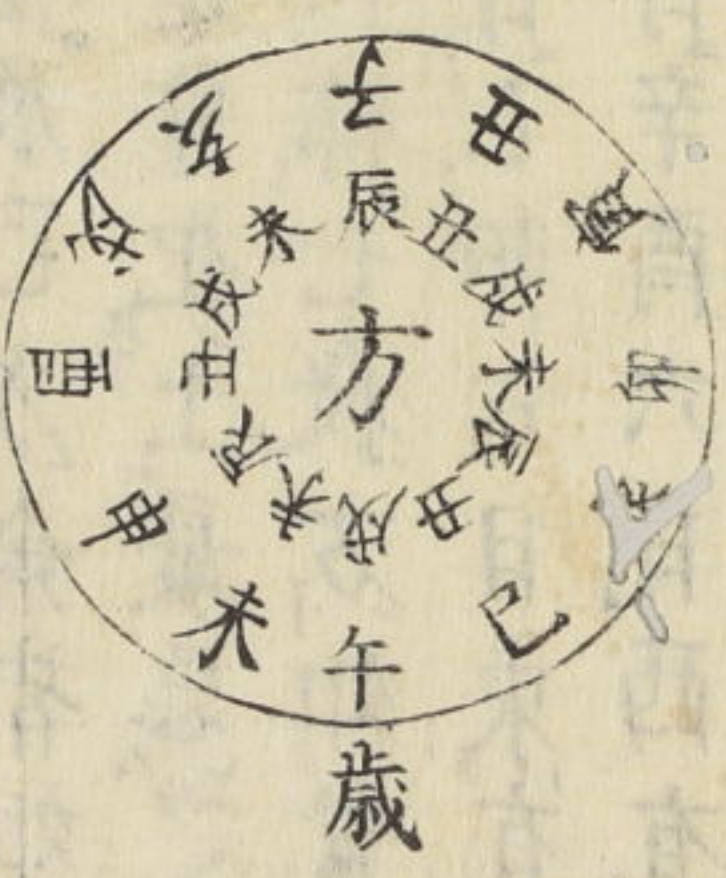 子丑寅卯巳午未申酉戌亥
辰丑戌未辰丑戌未辰丑戌未
方
歳